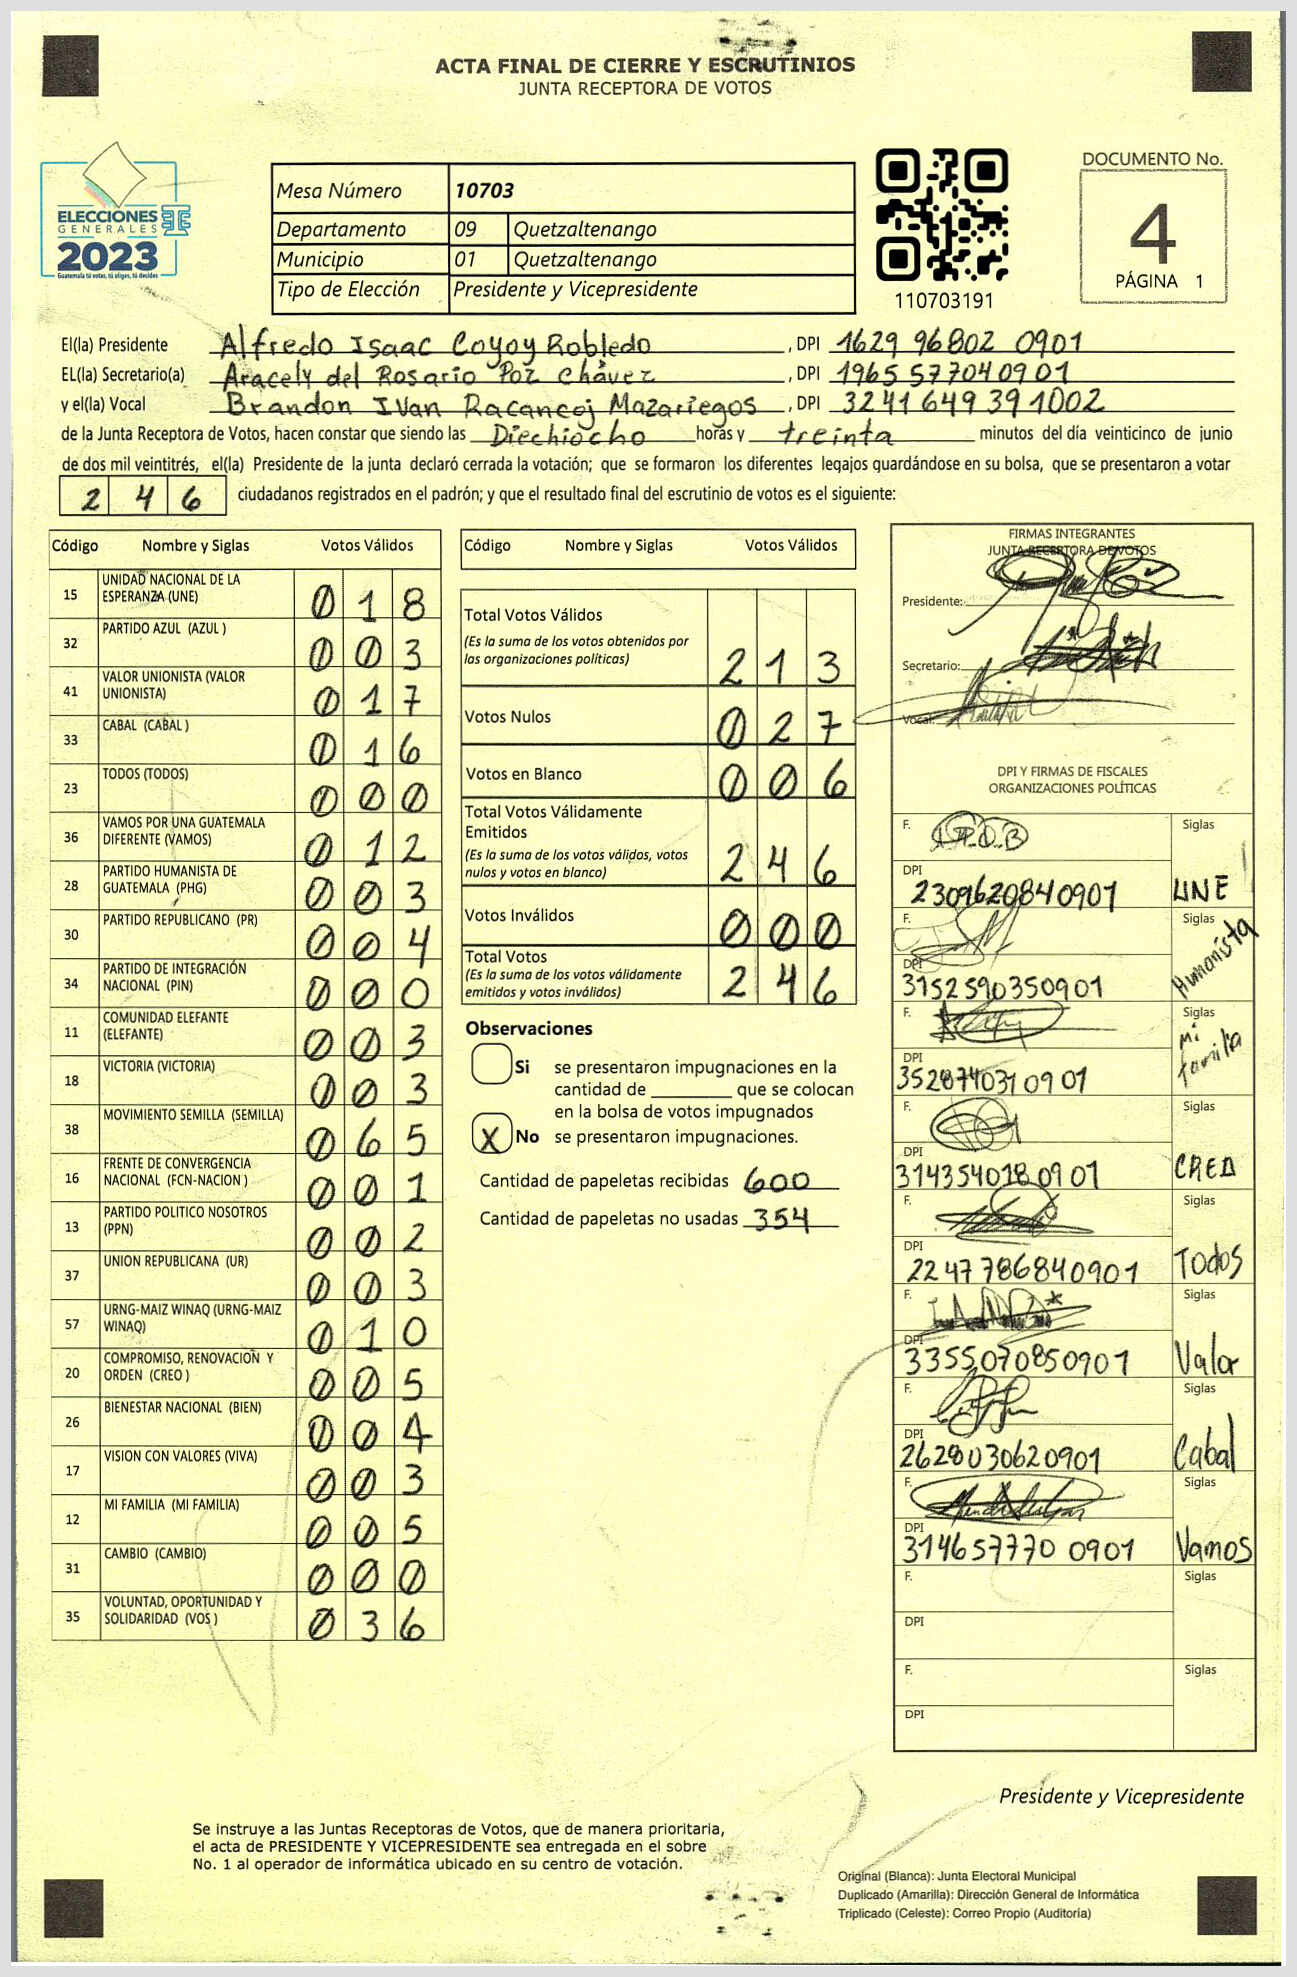 ACTA FINAL DE CIERRE Y ESCRUTINIOS
JUNTA RECEPTORA DE VOTOS
ELECCIONES
GENERALES
2023
Guatemala tú votas, tú eliges, tú decides
Mesa Número 10703
Departamento 09 Quetzaltenango
Municipio 01 Quetzaltenango
Tipo de Elección Presidente y Vicepresidente
110703191
DOCUMENTO No.
4
PÁGINA 1
El(la) Presidente Alfredo Isaac Coyoy Robledo, DPI 1629 96802 0901
EL(la) Secretario(a) Aracely del Rosario Poz Chávez, DPI 1965 57704 0901
y el(la) Vocal Brandon IVan Racancoj Mazariegos, DPI 3241 649 39 1002
de la Junta Receptora de Votos, hacen constar que siendo las Diechiocho horas y treinta minutos del día veinticinco de junio
de dos mil veintitrés, el(la) Presidente de la junta declaró cerrada la votación; que se formaron los diferentes legajos guardándose en su bolsa, que se presentaron a votar
2 4 6 ciudadanos registrados en el padrón; y que el resultado final del escrutinio de votos es el siguiente:
Código Nombre y Siglas Votos Válidos
15 UNIDAD NACIONAL DE LA
ESPERANZA (UNE) 0 1 8
32 PARTIDO AZUL (AZUL ) 0 0 3
41 VALOR UNIONISTA (VALOR
UNIONISTA) 0 1 7
33 CABAL (CABAL ) 0 1 6
23 TODOS (TODOS) 0 0 0
36 VAMOS POR UNA GUATEMALA
DIFERENTE (VAMOS) 0 1 2
28 PARTIDO HUMANISTA DE
GUATEMALA (PHG) 0 0 3
30 PARTIDO REPUBLICANO (PR) 0 0 4
34 PARTIDO DE INTEGRACIÓN
NACIONAL (PIN) 0 0 0
11 COMUNIDAD ELEFANTE
(ELEFANTE) 0 0 3
18 VICTORIA (VICTORIA) 0 0 3
38 MOVIMIENTO SEMILLA (SEMILLA) 0 6 5
16 FRENTE DE CONVERGENCIA
NACIONAL (FCN-NACION ) 0 0 1
13 PARTIDO POLITICO NOSOTROS
(PPN) 0 0 2
37 UNION REPUBLICANA (UR) 0 0 3
57 URNG-MAIZ WINAQ (URNG-MAIZ
WINAQ) 0 1 0
20 COMPROMISO, RENOVACION Y
ORDEN (CREO ) 0 0 5
26 BIENESTAR NACIONAL (BIEN) 0 0 4
17 VISION CON VALORES (VIVA) 0 0 3
12 MI FAMILIA (MI FAMILIA) 0 0 5
31 CAMBIO (CAMBIO) 0 0 0
35 VOLUNTAD, OPORTUNIDAD Y
SOLIDARIDAD (VOS ) 0 3 6
Código Nombre y Siglas Votos Válidos
Total Votos Válidos
(Es la suma de los votos obtenidos por
las organizaciones políticas) 2 1 3
Votos Nulos 0 2 7
Votos en Blanco 0 0 6
Total Votos Válidamente
Emitidos
(Es la suma de los votos válidos, votos
nulos y votos en blanco) 2 4 6
Votos Inválidos 0 0 0
Total Votos
(Es la suma de los votos válidamente
emitidos y votos inválidos) 2 4 6
Observaciones
Si se presentaron impugnaciones en la
cantidad de ________ que se colocan
en la bolsa de votos impugnados
X No se presentaron impugnaciones.
Cantidad de papeletas recibidas 600
Cantidad de papeletas no usadas 354
FIRMAS INTEGRANTES
JUNTA RECEPTORA DE VOTOS
Presidente:
Secretario:
Vocal:
DPI Y FIRMAS DE FISCALES
ORGANIZACIONES POLÍTICAS
F. Siglas
DPI
2309620840901 UNE
F. Siglas
DPI
3152590350901 Humanista
F. Siglas
DPI Mi
352874031 0901 familia
F. Siglas
DPI
314354018 0901 CREO
F. Siglas
DPI
2247786840901 Todos
F. Siglas
DPI
3355070850901 Valor
F. Siglas
DPI
2628030620901 Cabal
F. Siglas
DPI
314657770 0901 Vamos
F. Siglas
DPI
F. Siglas
DPI
Presidente y Vicepresidente
Se instruye a las Juntas Receptoras de Votos, que de manera prioritaria,
el acta de PRESIDENTE Y VICEPRESIDENTE sea entregada en el sobre
No. 1 al operador de informática ubicado en su centro de votación.
Original (Blanca): Junta Electoral Municipal
Duplicado (Amarilla): Dirección General de Informática
Triplicado (Celeste): Correo Propio (Auditoría)